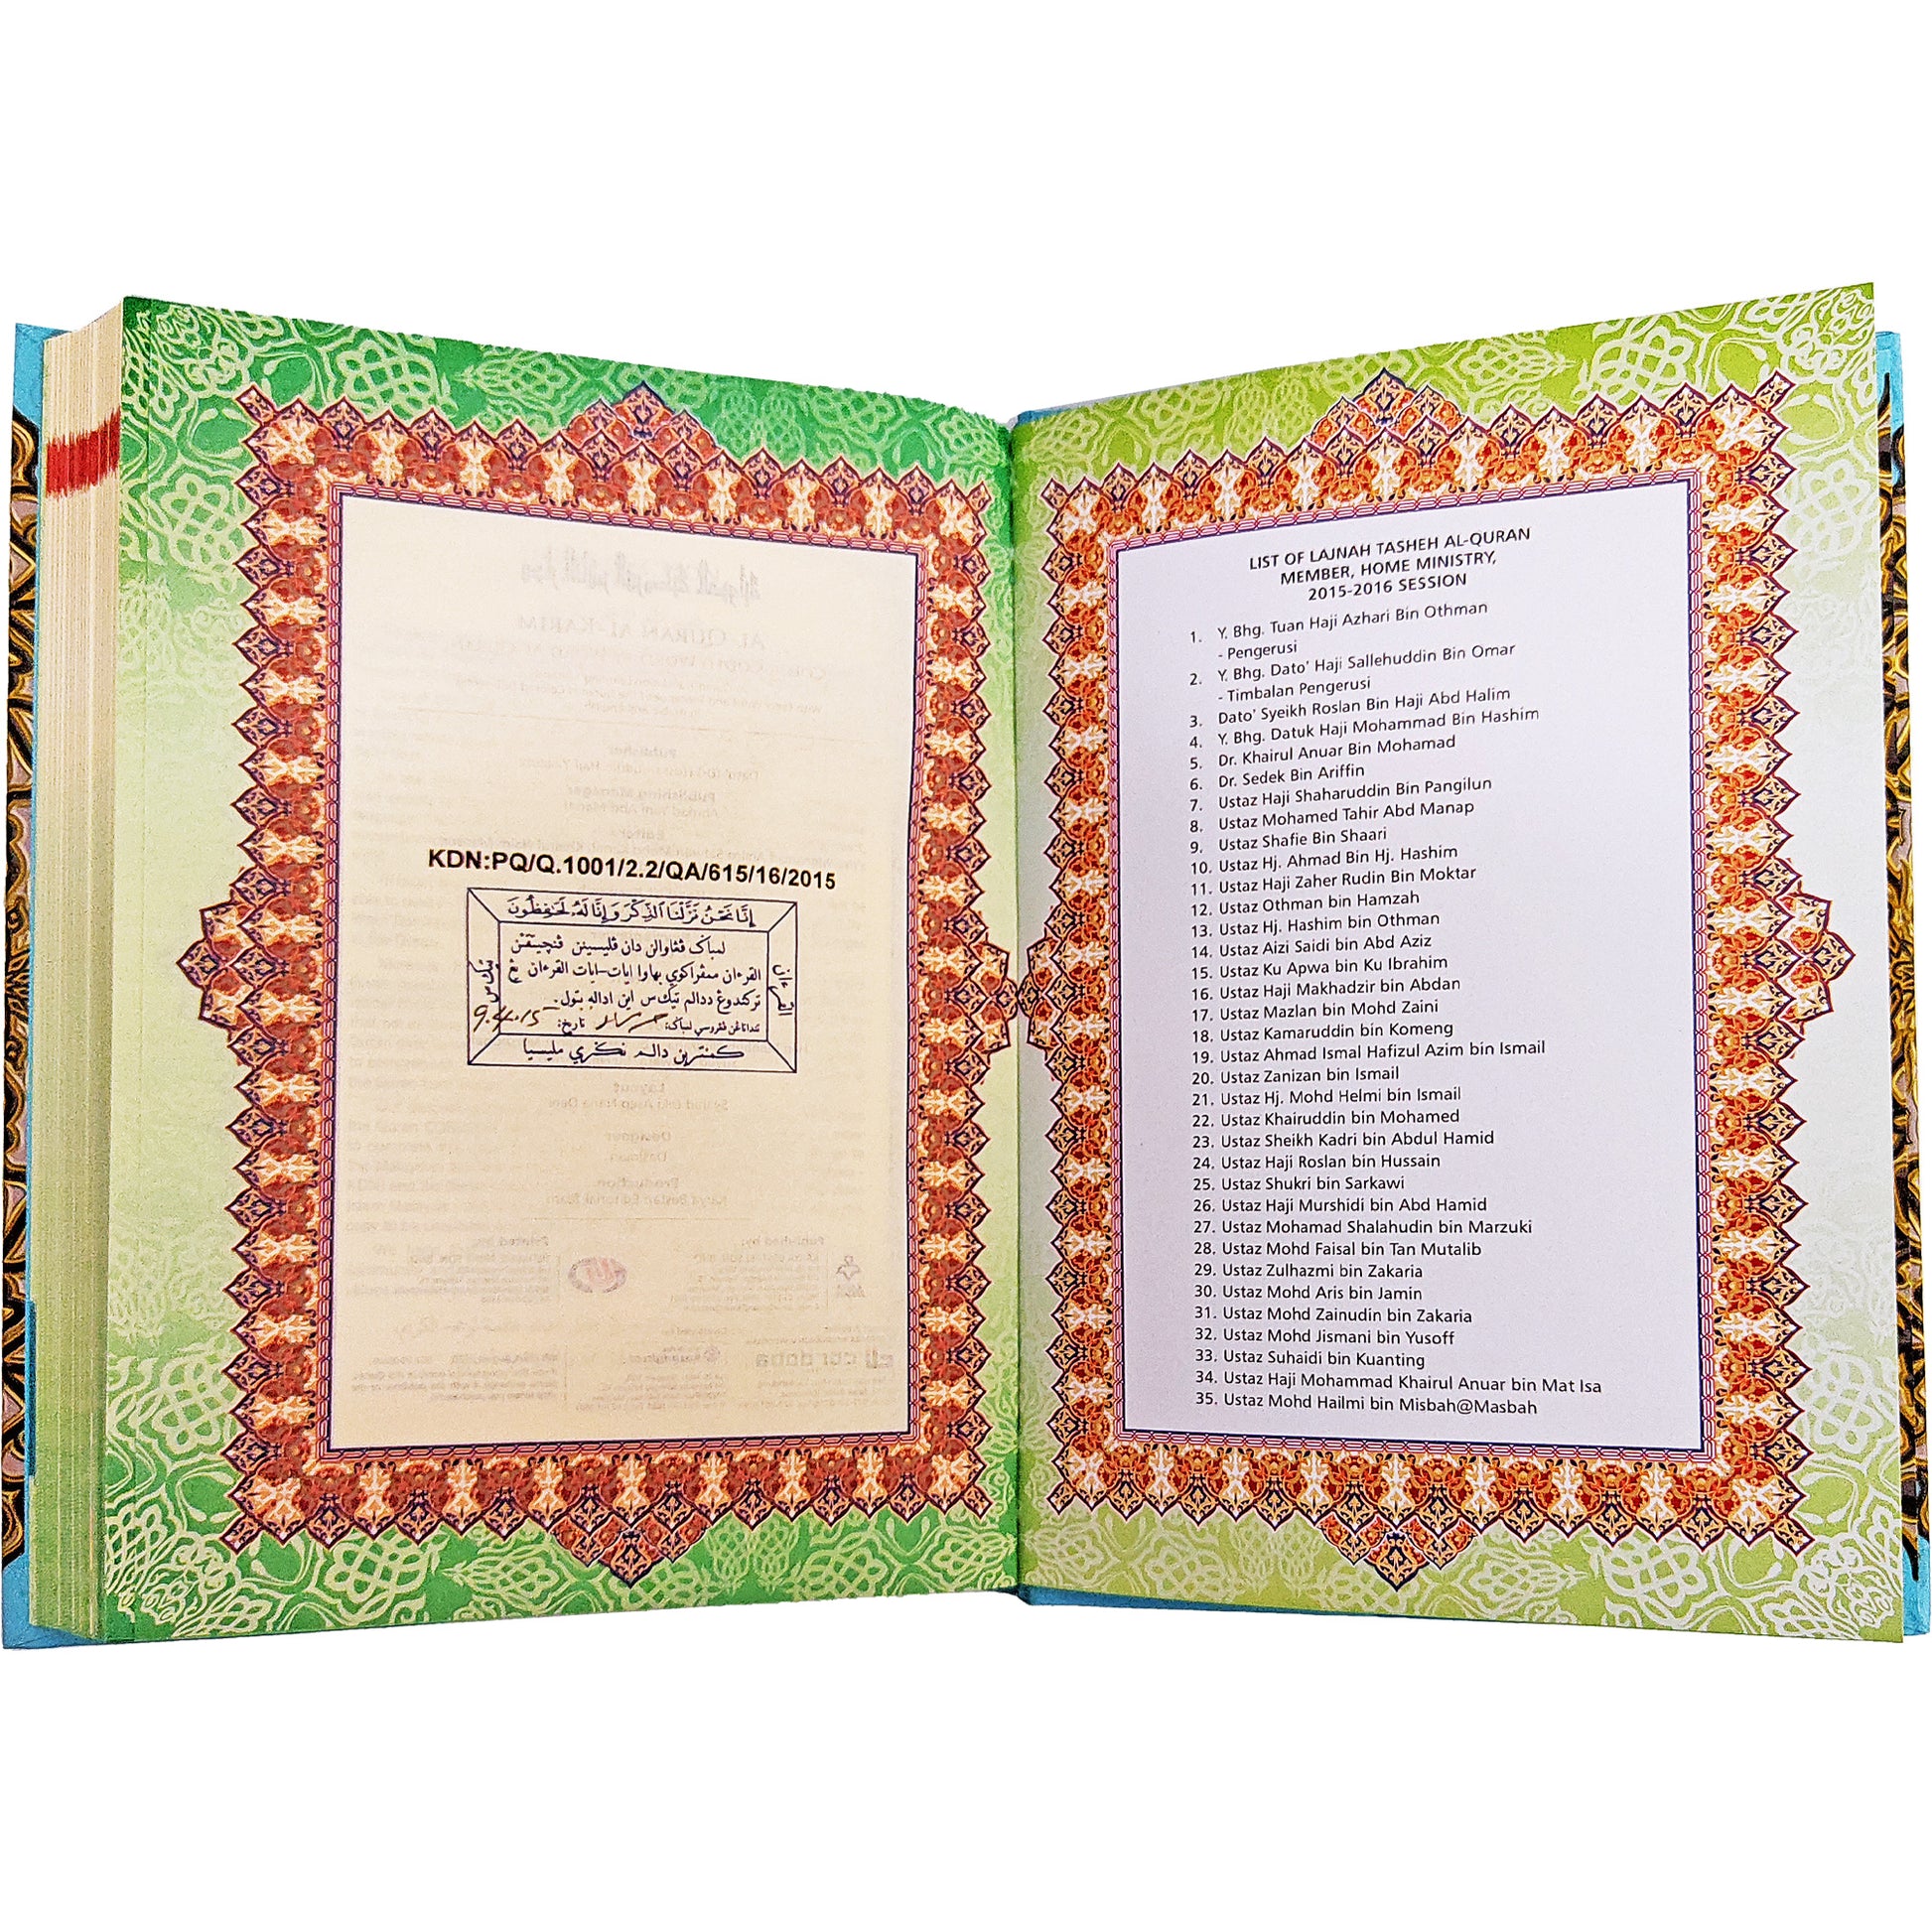 KDN:PQ/Q.1001/2.2/QA/615/16/2015
إِنَّا نَحْنُ نَزَّلْنَا الذِّكْرَ وَإِنَّا لَهُ لَحَافِظُونَ
لمباݢ ڤڠاولن دان ڤليسينن ڤنچيتقن
القرءان مڠاکوي بهاوا ايات-ايات القرءان يڠ
تركندوڠ ددالم تيک س اين اداله بتول.
تنداتاڠن ڤڠروسي لمباݢ: تاريخ: 9.4.2015
تيک س
القرءان
كمنترين دالم نݢري مليسيا
LIST OF LAJNAH TASHEH AL-QURAN
MEMBER, HOME MINISTRY,
2015-2016 SESSION
1. Y. Bhg. Tuan Haji Azhari Bin Othman
- Pengerusi
2. Y. Bhg. Dato' Haji Sallehuddin Bin Omar
- Timbalan Pengerusi
3. Dato' Syeikh Roslan Bin Haji Abd Halim
4. Y. Bhg. Datuk Haji Mohammad Bin Hashim
5. Dr. Khairul Anuar Bin Mohamad
6. Dr. Sedek Bin Ariffin
7. Ustaz Haji Shaharuddin Bin Pangilun
8. Ustaz Mohamed Tahir Abd Manap
9. Ustaz Shafie Bin Shaari
10. Ustaz Hj. Ahmad Bin Hj. Hashim
11. Ustaz Haji Zaher Rudin Bin Moktar
12. Ustaz Othman bin Hamzah
13. Ustaz Hj. Hashim bin Othman
14. Ustaz Aizi Saidi bin Abd Aziz
15. Ustaz Ku Apwa bin Ku Ibrahim
16. Ustaz Haji Makhadzir bin Abdan
17. Ustaz Mazlan bin Mohd Zaini
18. Ustaz Kamaruddin bin Komeng
19. Ustaz Ahmad Ismal Hafizul Azim bin Ismail
20. Ustaz Zanizan bin Ismail
21. Ustaz Hj. Mohd Helmi bin Ismail
22. Ustaz Khairuddin bin Mohamed
23. Ustaz Sheikh Kadri bin Abdul Hamid
24. Ustaz Haji Roslan bin Hussain
25. Ustaz Shukri bin Sarkawi
26. Ustaz Haji Murshidi bin Abd Hamid
27. Ustaz Mohamad Shalahudin bin Marzuki
28. Ustaz Mohd Faisal bin Tan Mutalib
29. Ustaz Zulhazmi bin Zakaria
30. Ustaz Mohd Aris bin Jamin
31. Ustaz Mohd Zainudin bin Zakaria
32. Ustaz Mohd Jismani bin Yusoff
33. Ustaz Suhaidi bin Kuanting
34. Ustaz Haji Mohammad Khairul Anuar bin Mat Isa
35. Ustaz Mohd Hailmi bin Misbah@Masbah